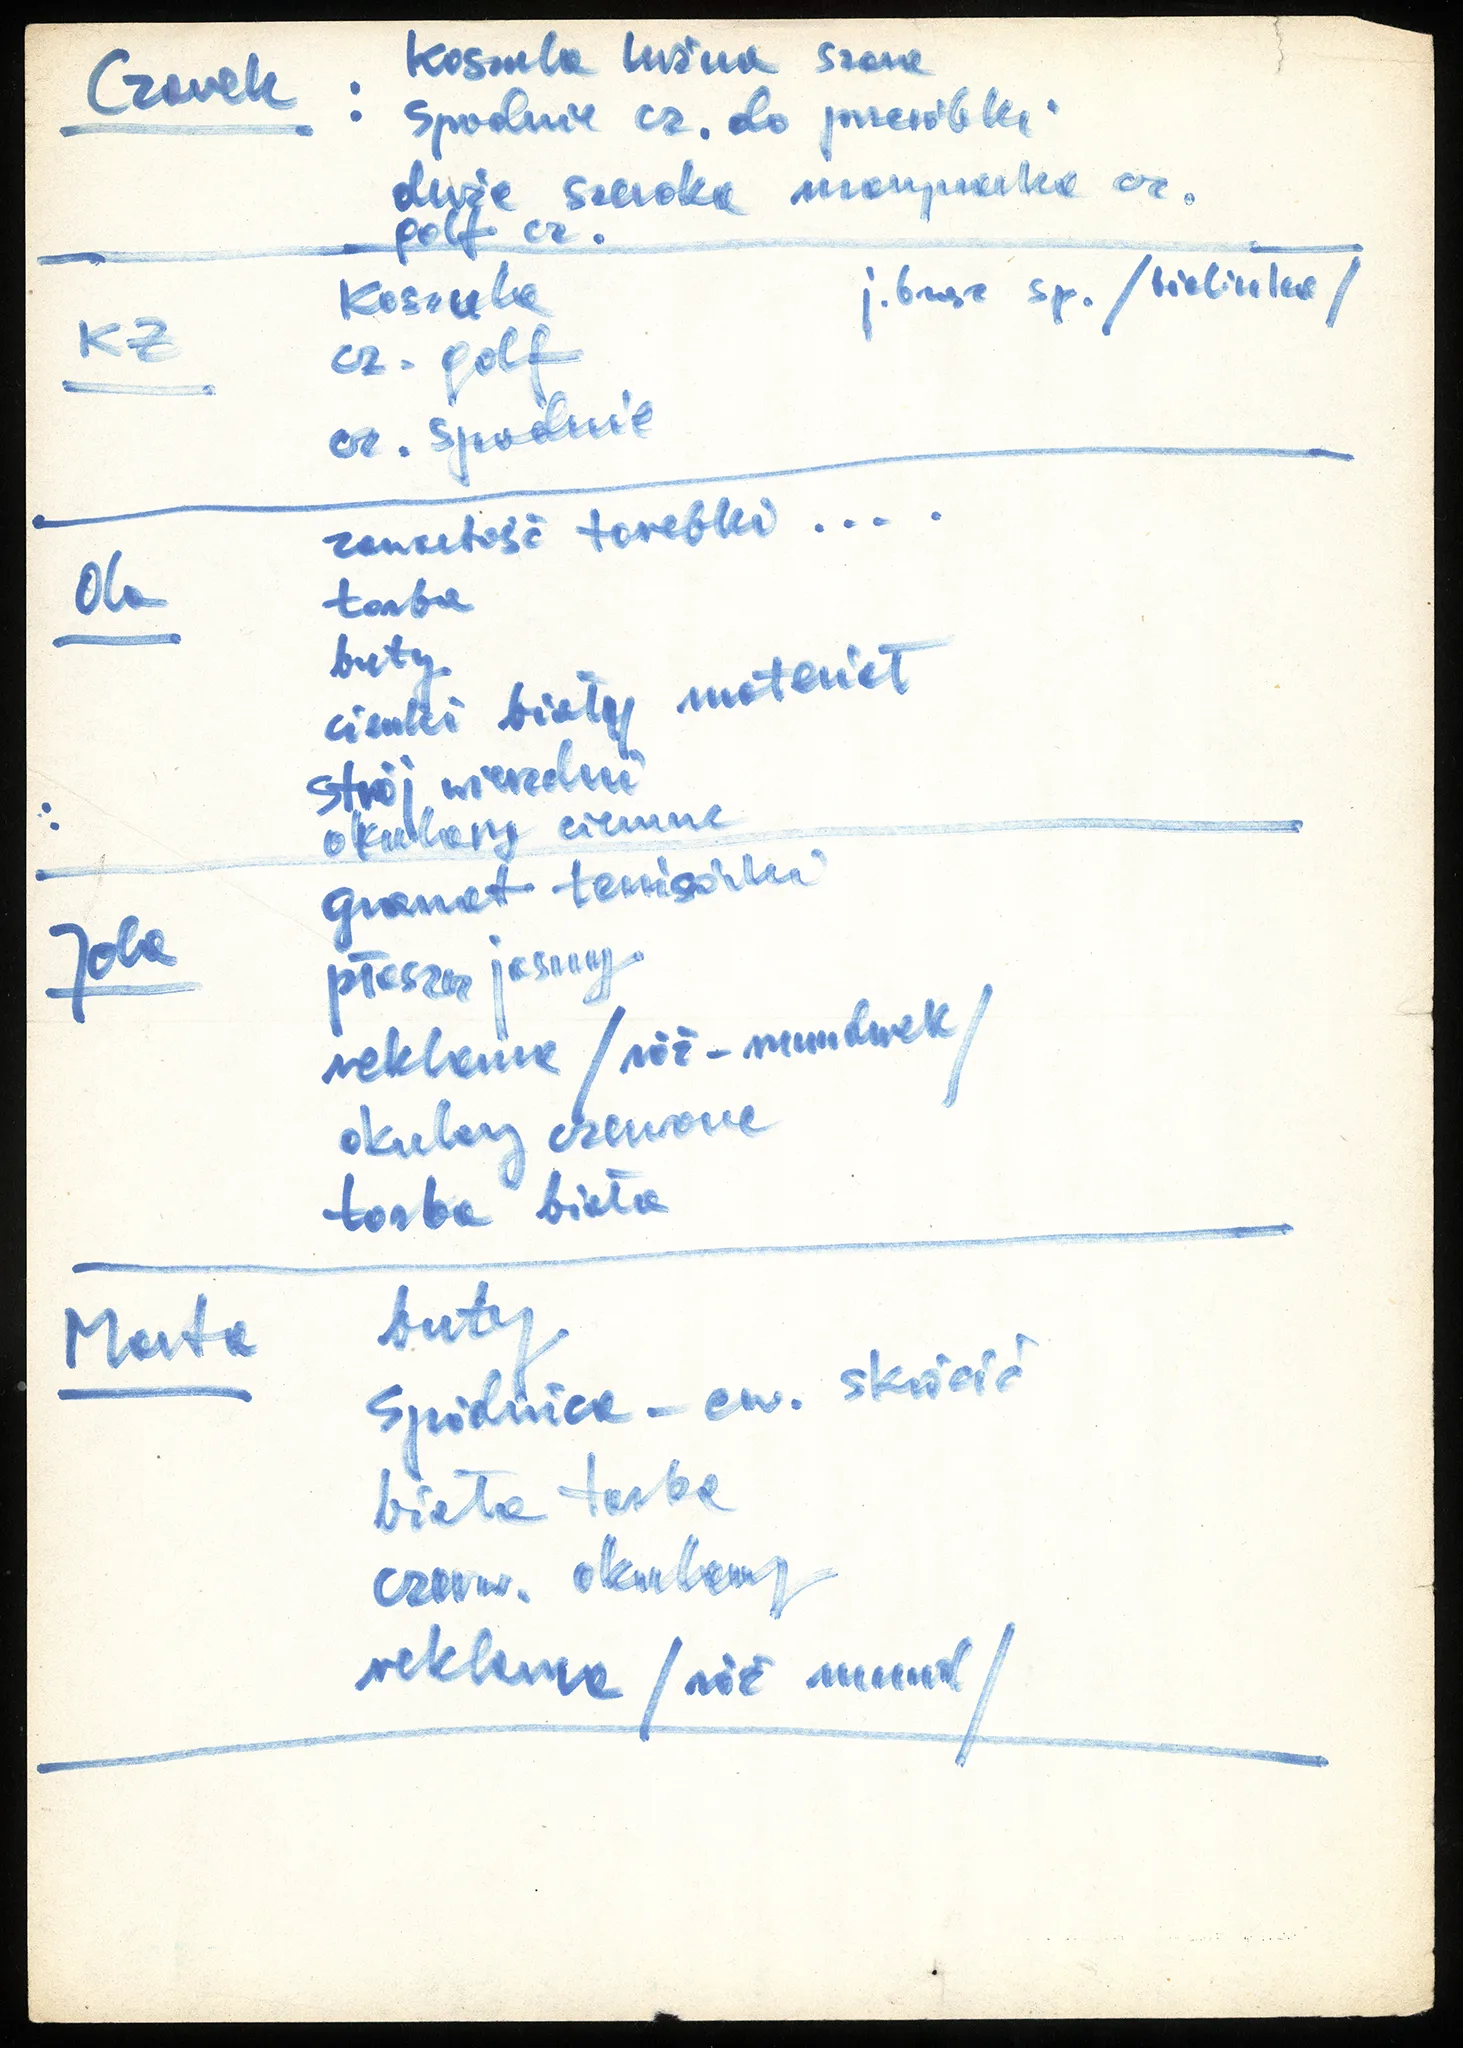 Czarek :
Koszula luźna szara
spodnie cz. do przeróbki
duża szeroka marynarka cz.
golf cz.
KZ
Koszula
j. brąz sp. /bielinka/
cz. golf
cz. spodnie
Ola
zawartość torebki ... .
torba
buty
cienki biały materiał
strój wierzchni
okulary ciemne
Jola
granat tenisówki
płaszcz jasny
reklama /róż - mundurek/
okulary czerwone
torba biała
Marta
buty
Spódnica - ew. skrócić
biała torba
czerw. okulary
reklama /róż mund/